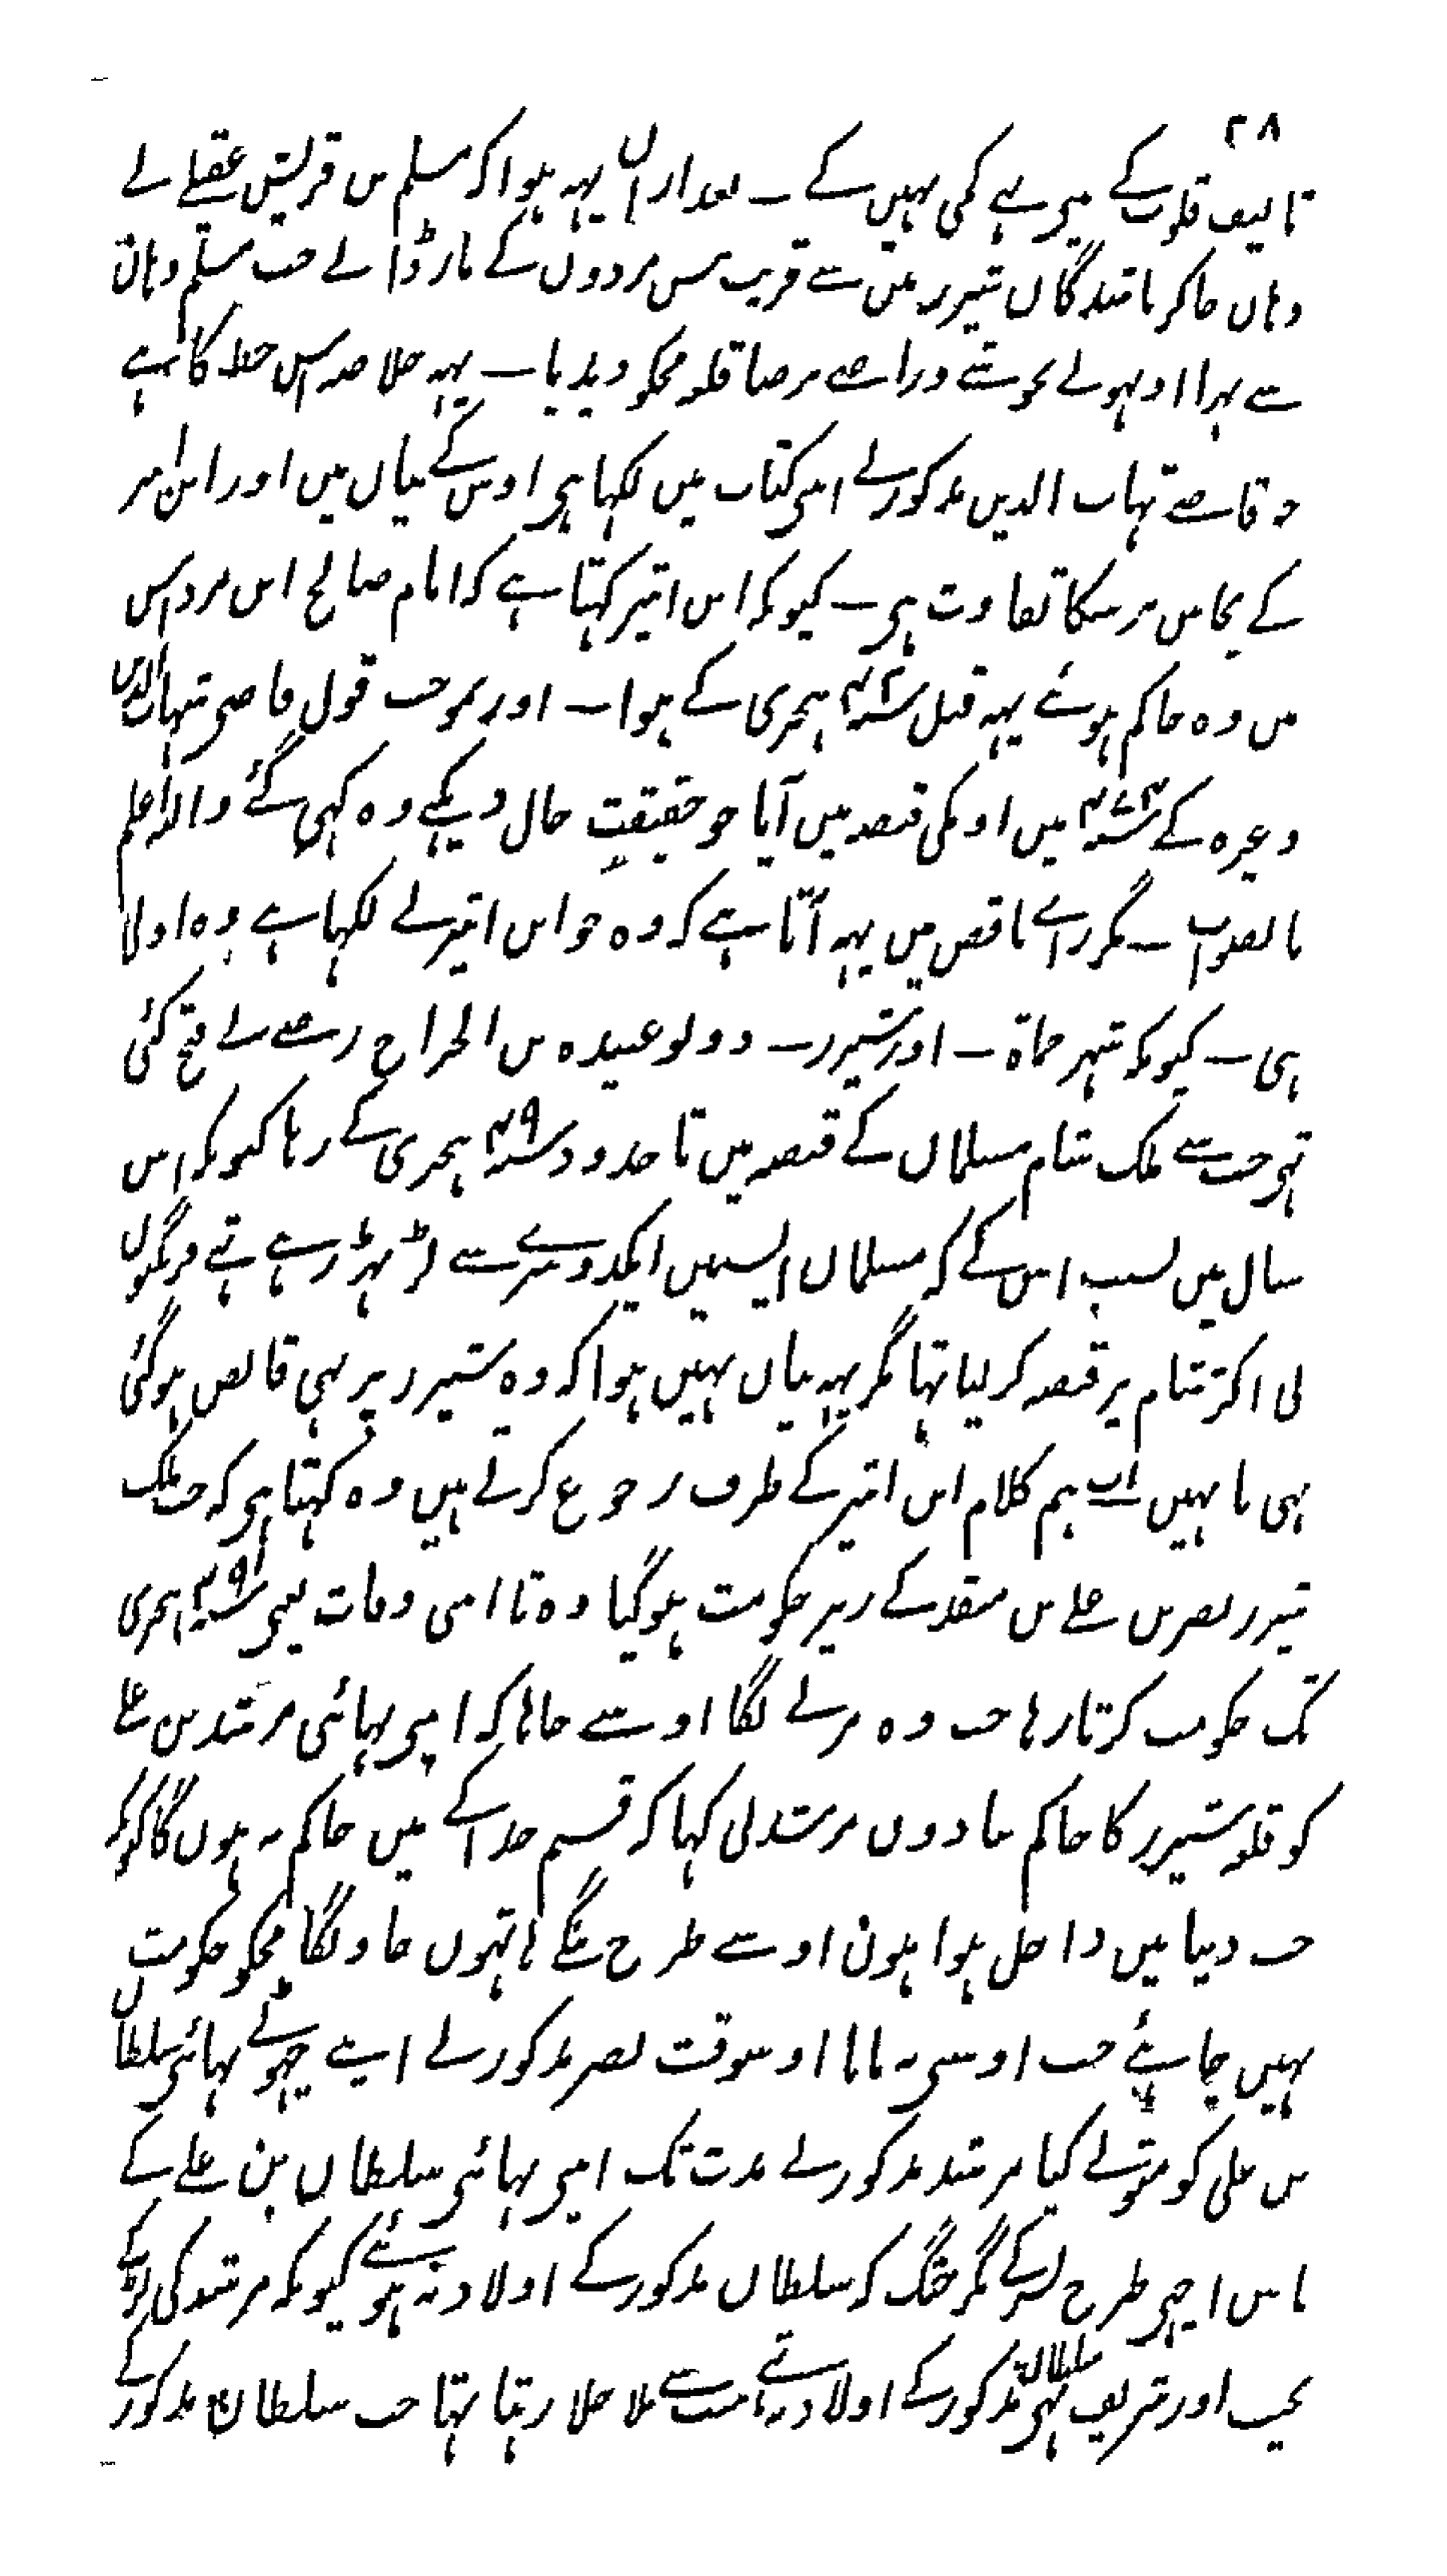 ۲۸
تالیف قلوب کے میرے ہی کمی نہیں کے ـ بعد ازاں یہہ ہوا کہ مسلم بن قریش عقیلے نے
وہاں جاکر باشندگان شیزر میں سے قریب بیس مردوں کے مار ڈالے جب مسلم وہان
سے پہرا اونہوں نے بخوشے و راضے مرضا قلعہ مجکو دیدیا ـ یہہ خلاصہ اس خط کا ہے
جو قاضے شہاب الدین مذکور نے اپنی کتاب میں لکہا ہی اوس کے بیاں میں اور اس امر
کے پچاس برسکا تفاوت ہی ـ کیونکہ ابن اثیر کہتا ہے کہ ایام صالح ابن مرداس
میں وہ حاکم ہوئے یہہ قبل سنہ ۴۲۰ ہجری کے ہوا ـ اور بموجب قول قاضی شہاب الدین
وغیرہ کے سنہ ۴۷۴ میں اونکی قبضہ میں آیا جو حقیقتِ حال دیکہے وہ کہی گئے واللہ اعلم
بالصواب ـ مگر رائے ناقص میں یہہ آتا ہے کہ وہ جو ابن اثیر نے لکہا ہے وہ اولا
ہی ـ کیونکہ شہر حماة ـ اور شیزر ـ دو بو عبیدہ بن الجراح رضے نے فتح کئی
تہی جب سے ملک شام مسلمان کے قبضہ میں تا حدود سنہ ۴۹۰ ہجری کے رہا کیونکہ اس
سال میں بسبب اس کے کہ مسلمان آپسمیں ایکدوسرے سے لڑ بہڑ رہے تہے فرنگیوں
نی اکثر شام پر قبضہ کر لیا تہا مگر یہہ بیاں نہیں ہوا کہ وہ شیزر پر بہی قابض ہوگئی
تہی یا نہیں اب ہم کلام ابن اثیر کے طرف رجوع کرتے ہیں وہ کہتا ہی کہ جب ملک
شیزر نصر بن علے بن منقذ کے زیر حکومت ہوگیا وہ تا اپنی وفات یعنی سنہ ۴۹۱ ہجری
تک حکومت کرتا رہا جب وہ مرنے لگا اوسنے چاہا کہ اپنی بہائی مرشد بن علے
کو قلعہ شیزر کا حاکم بنا دوں مرشد نی کہا کہ قسم خدا کے میں حاکم نہ ہوں گا کیونکہ
جب دنیا میں داخل ہوا ہون اوسے طرح ننگے ہاتہوں جاونگا مجکو حکومت
نہیں چاہئے جب اوسنی نہ مانا اوسوقت نصر مذکور نے اپنے چہوٹے بہائی سلطان
بن علی کو متولے کیا مرشد مذکور نے مدت تک اپنی بہائی سلطان بن علے کے
پاس اچہی طرح بسر کے مگر جبتک کہ سلطان مذکور کے اولاد نہ ہوئے کیونکہ مرشد کی لڑکے
نجیب اور شریف تہی سلطان مذکور کے اولاد نہ تہے سب سے ملا جلا رہتا تہا جب سلطان مذکور کے